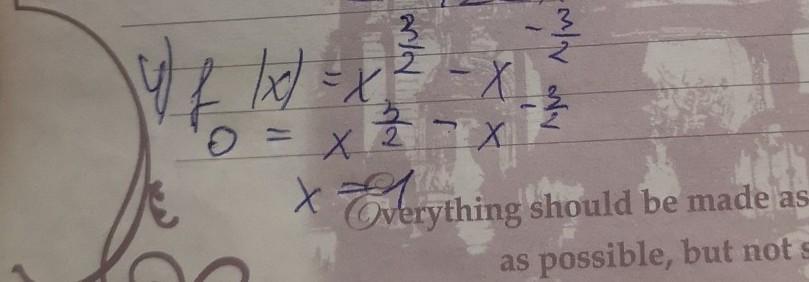 4) f(x) = x^{3/2} - x^{-3/2}
0 = x^{3/2} - x^{-3/2}
x = 1
Everything should be made as
as possible, but not s